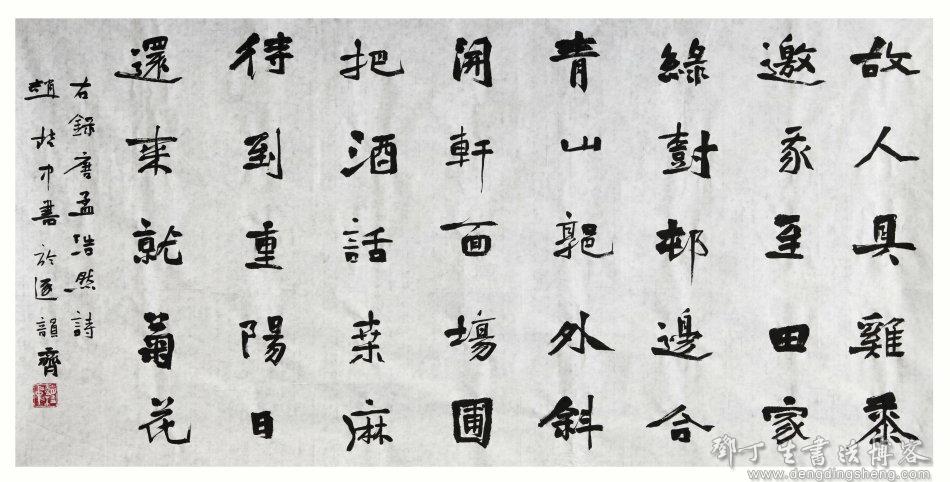 故人具雞黍
邀我至田家
綠樹邨邊合
青山郭外斜
開軒面場圃
把酒話桑麻
待到重陽日
還來就菊花
右錄唐孟浩然詩
書於逐韻齊
鄧丁生書法博客
www.dengdingsheng.com